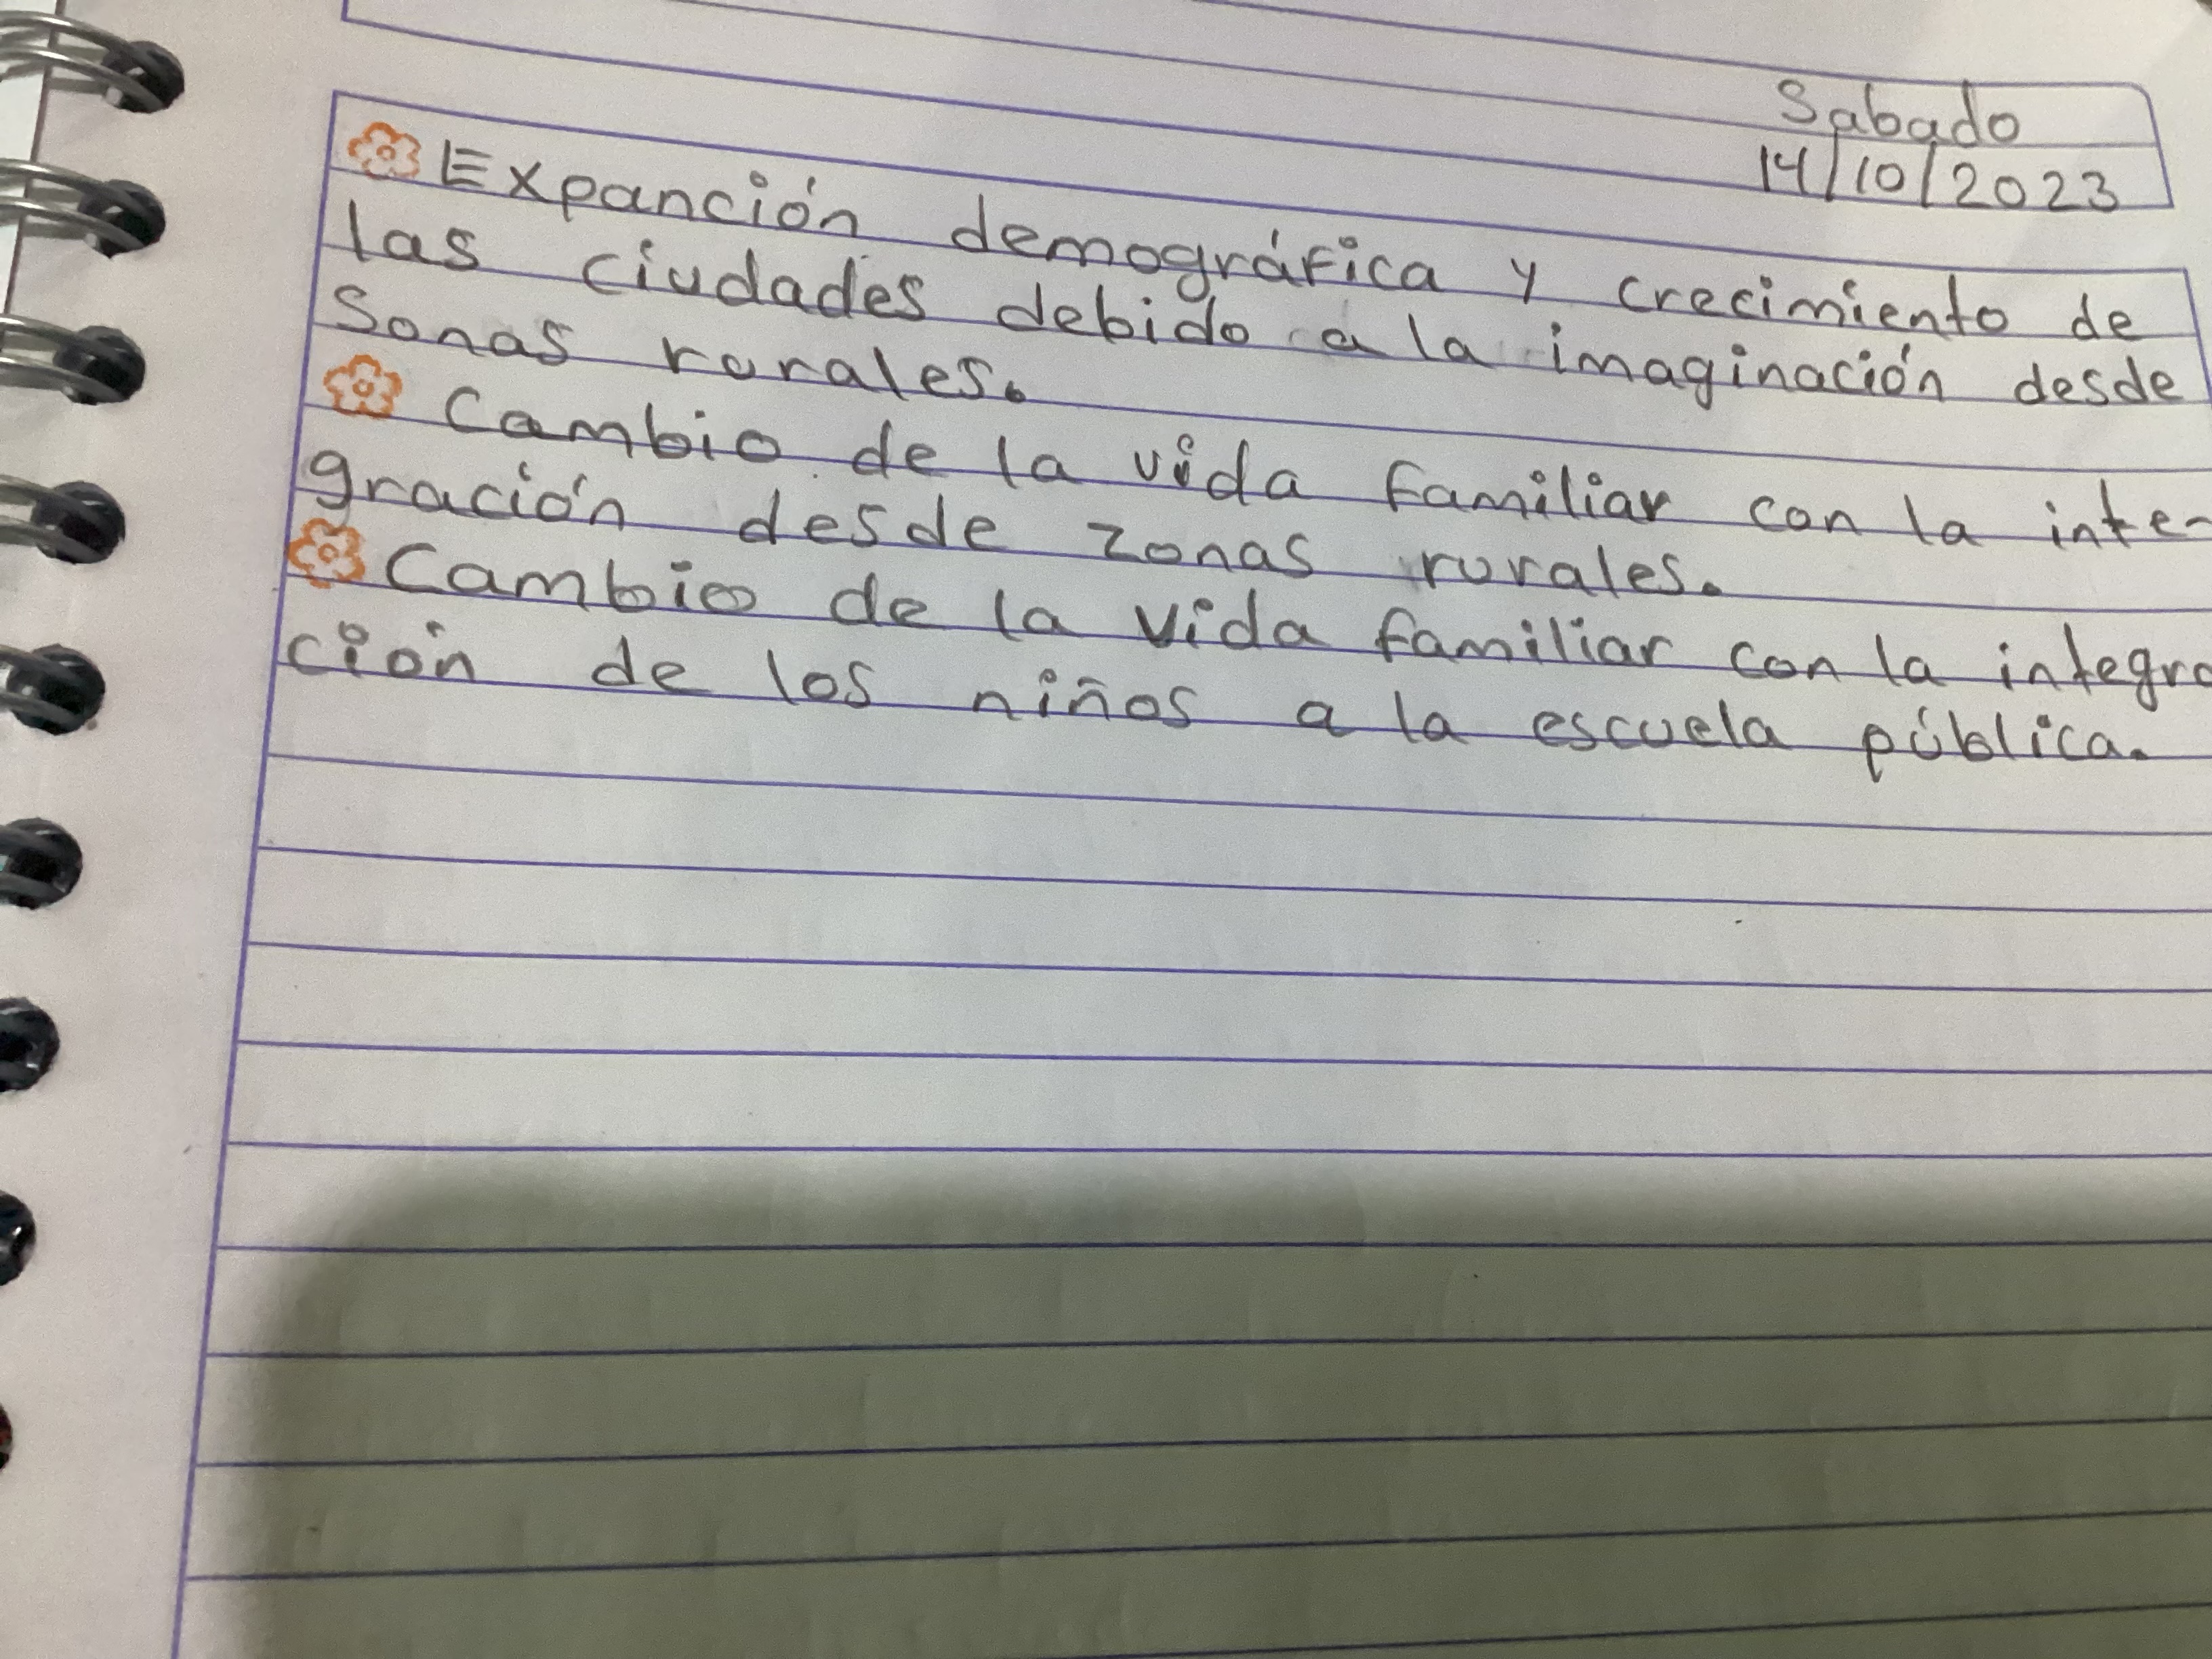 Sabado
14/10/2023
Expanción demográfica y crecimiento de
las ciudades debido a la imaginación desde
Sonas rurales.
Cambio de la vida familiar con la inte-
gración desde zonas rurales.
Cambio de la vida familiar con la integra
ción de los niños a la escuela pública.